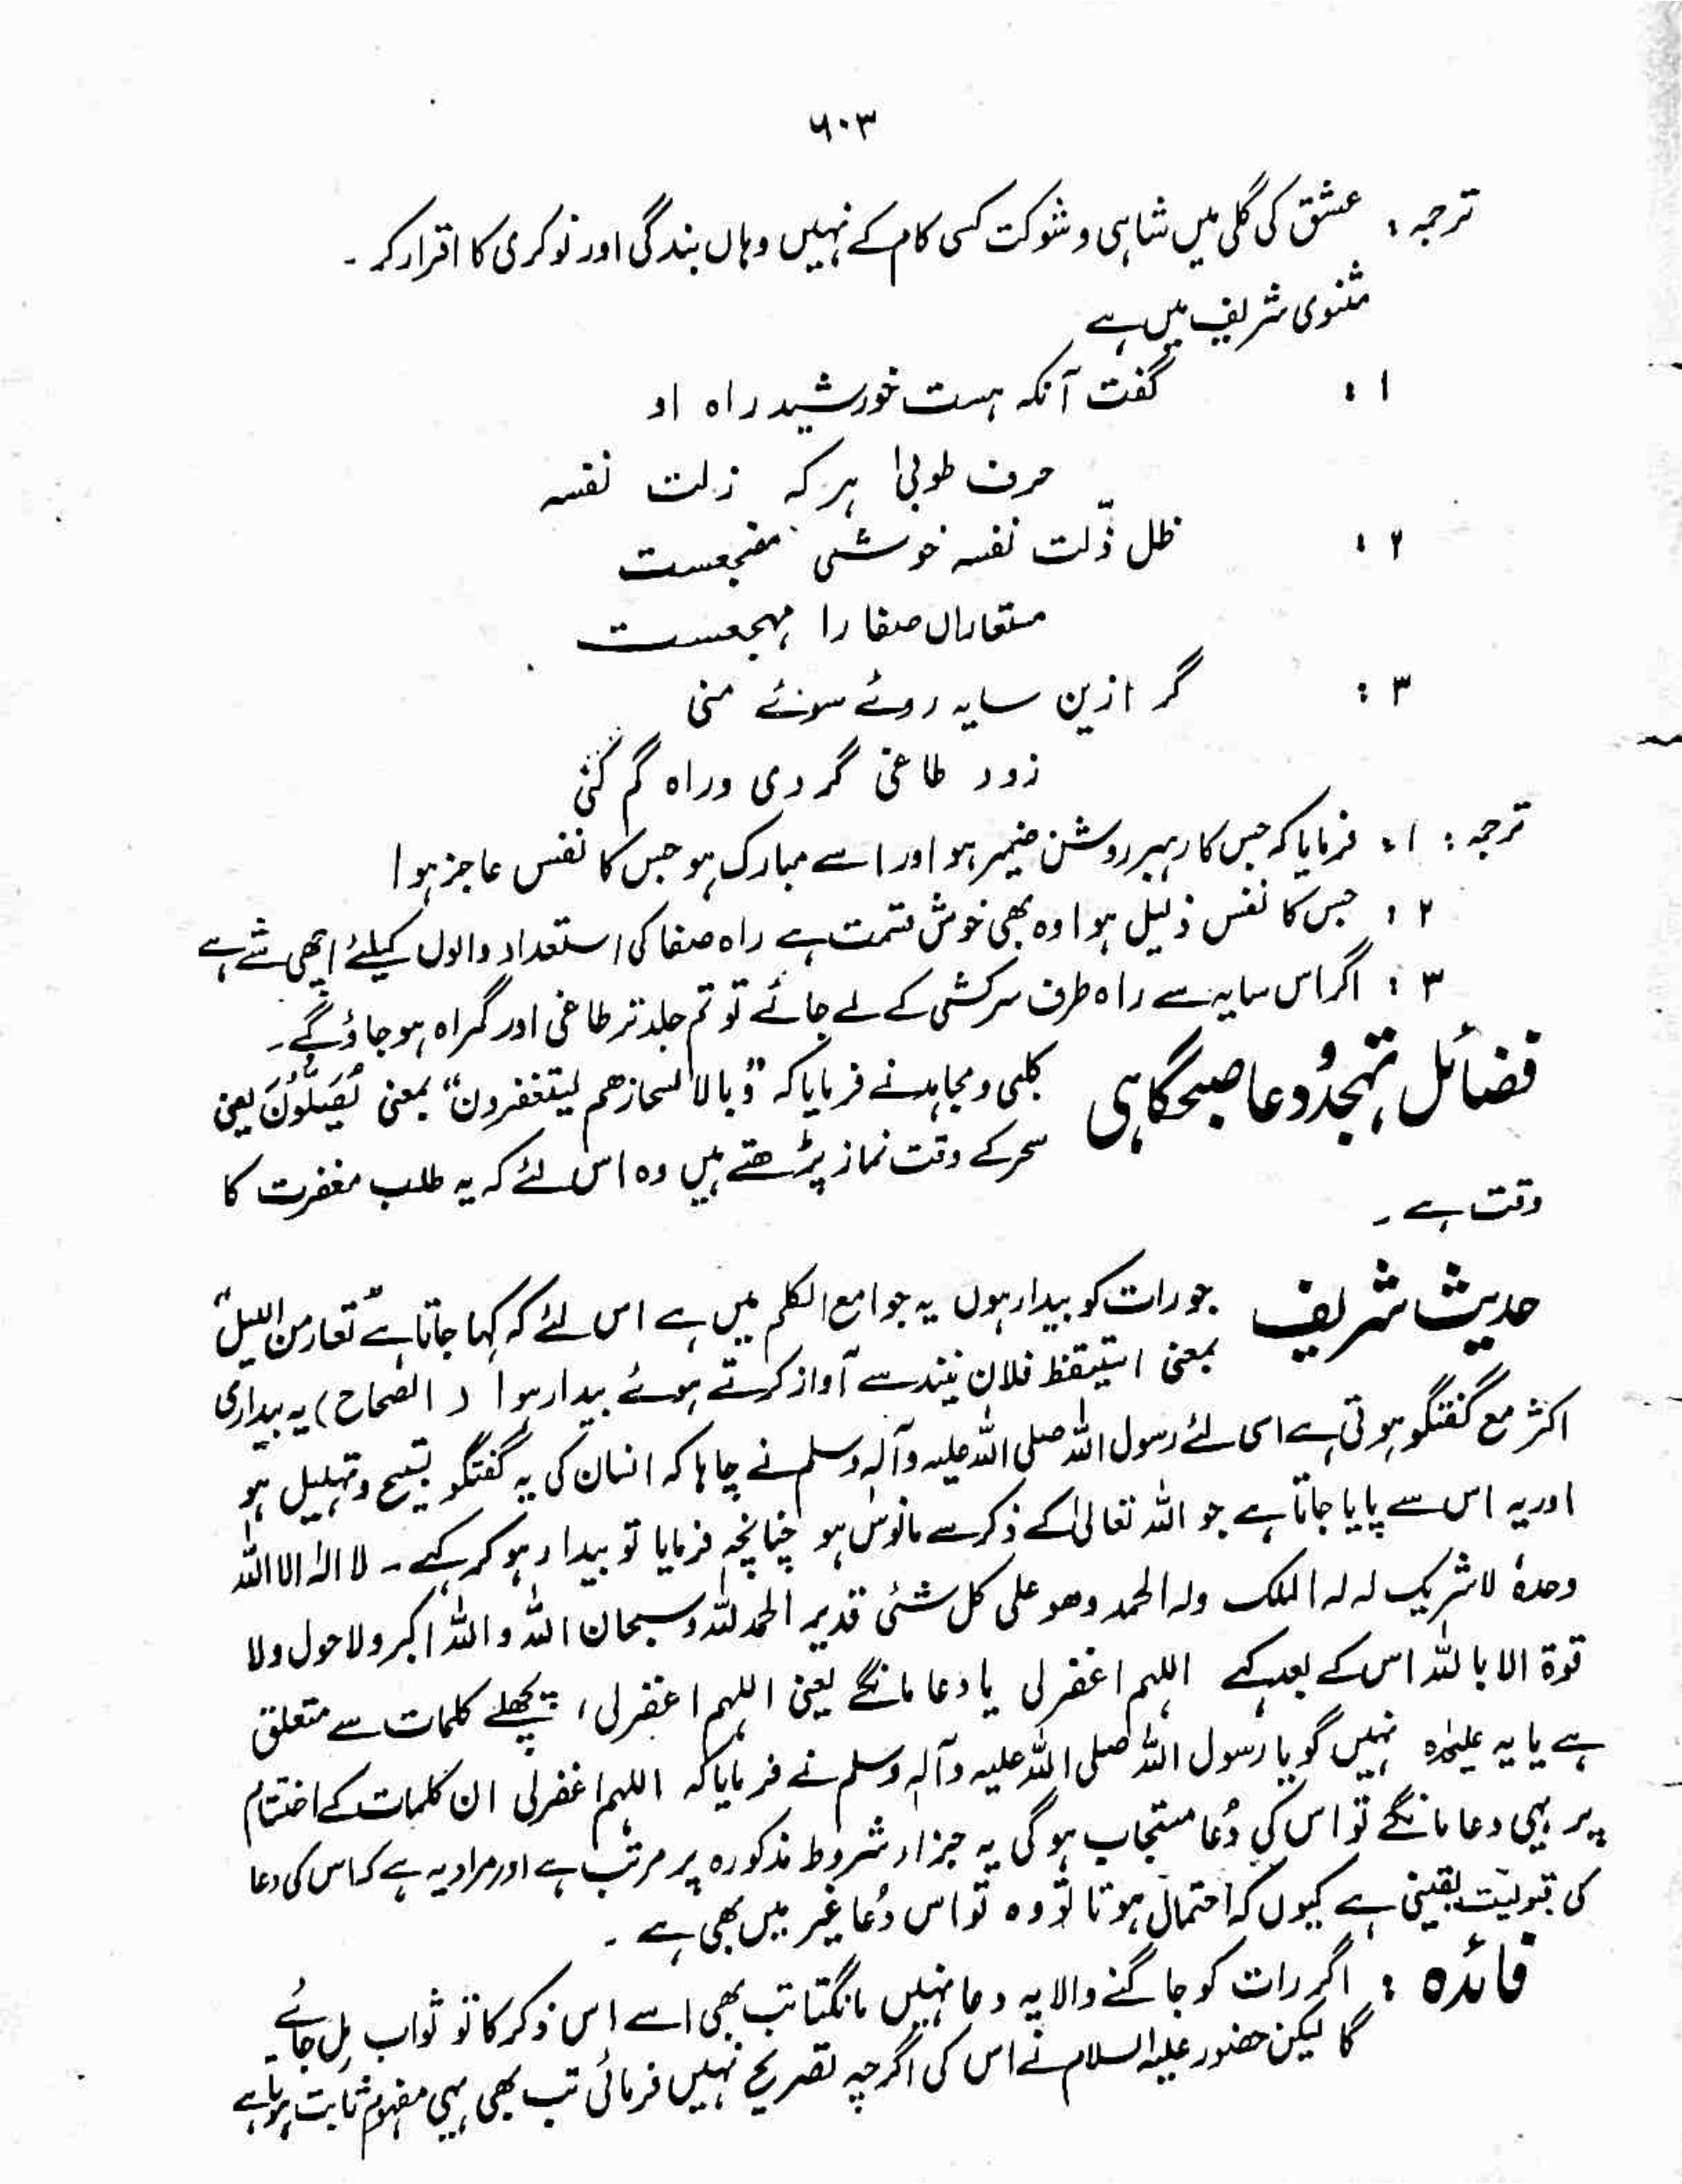 ۶۰۳
ترجمہ: عشق کی گلی میں شاہی و شوکت کسی کام کے نہیں وہاں بندگی اور نوکری کا اقرار کر۔
مثنوی شریف میں ہے
۱: گفت آنکہ ہست خورشید راہ او
حرف طوبیٰ ہر کہ زلت نفسہ
۲: ظل ذّلت نفسہ خوشی مضجعست
مستعداں صفا را مہجعست
۳: گر ازین سایہ روئے سوئے منی
زود طاغی گردی و راہ گم کنی
ترجمہ: ۱: فرمایا کہ جس کا رہبر روشن ضمیر ہو اور اسے مبارک ہو جس کا نفس عاجز ہوا
۲: جس کا نفس ذلیل ہوا وہ بھی خوش قسمت ہے راہ صفا کی استعداد والوں کیلئے اچھی شے ہے
۳: اگر اس سایہ سے راہ طرف سرکشی کے لے جائے تو تم جلد تر طاغی اور گمراہ ہو جاؤ گے۔
فضائل تہجد و دعا صبحگاہی کلبی و مجاہد نے فرمایا کہ "وبالاسحارهم یستغفرون" بمعنی یُصَلُّوْنَ یعنی
سحر کے وقت نماز پڑھتے ہیں وہ اس لئے کہ یہ طلب مغفرت کا
وقت ہے۔
حدیث شریف جو رات کو بیدار ہوں یہ جوامع الکلم میں ہے اس لئے کہ کہا جاتا ہے "تعار من اللیل"
بمعنی استیقظ فلان نیند سے آواز کرتے ہوئے بیدار ہوا (الصحاح) یہ بیداری
اکثر مع گفتگو ہوتی ہے اسی لئے رسول اللہ صلی اللہ علیہ وآلہ وسلم نے چاہا کہ انسان کی یہ گفتگو تسبیح و تہلیل ہو
اور یہ اس سے پایا جاتا ہے جو اللہ تعالیٰ کے ذکر سے مانوس ہو چنانچہ فرمایا تو بیدار ہو کر کہے۔ لا الہ الا اللہ
وحدہٗ لا شریک لہ لہ الملک ولہ الحمد وھو علی کل شئی قدیر الحمدللہ وسبحان اللہ واللہ اکبر ولا حول ولا
قوۃ الا باللہ اس کے بعد کہے اللہم اغفرلی یا دعا مانگے یعنی اللہم اغفرلی، پچھلے کلمات سے متعلق
ہے یا یہ علیحدہ نہیں گویا رسول اللہ صلی اللہ علیہ وآلہ وسلم نے فرمایا کہ اللہم اغفرلی ان کلمات کے اختتام
پر یہی دعا مانگے تو اس کی دُعا مستجاب ہوگی یہ جزاء شروط مذکورہ پر مرتب ہے اور مراد یہ ہے کہ اس کی دعا
کی قبولیت یقینی ہے کیوں کہ احتمال ہوتا تو وہ تو اس دُعا غیر میں بھی ہے۔
فائدہ: اگر رات کو جاگنے والا یہ دعا نہیں مانگتا تب بھی اسے اس ذکر کا تو ثواب مل جائے
گا لیکن حضور علیہ السلام نے اس کی اگرچہ تصریح نہیں فرمائی تب بھی یہی مفہوم ثابت ہوتا ہے